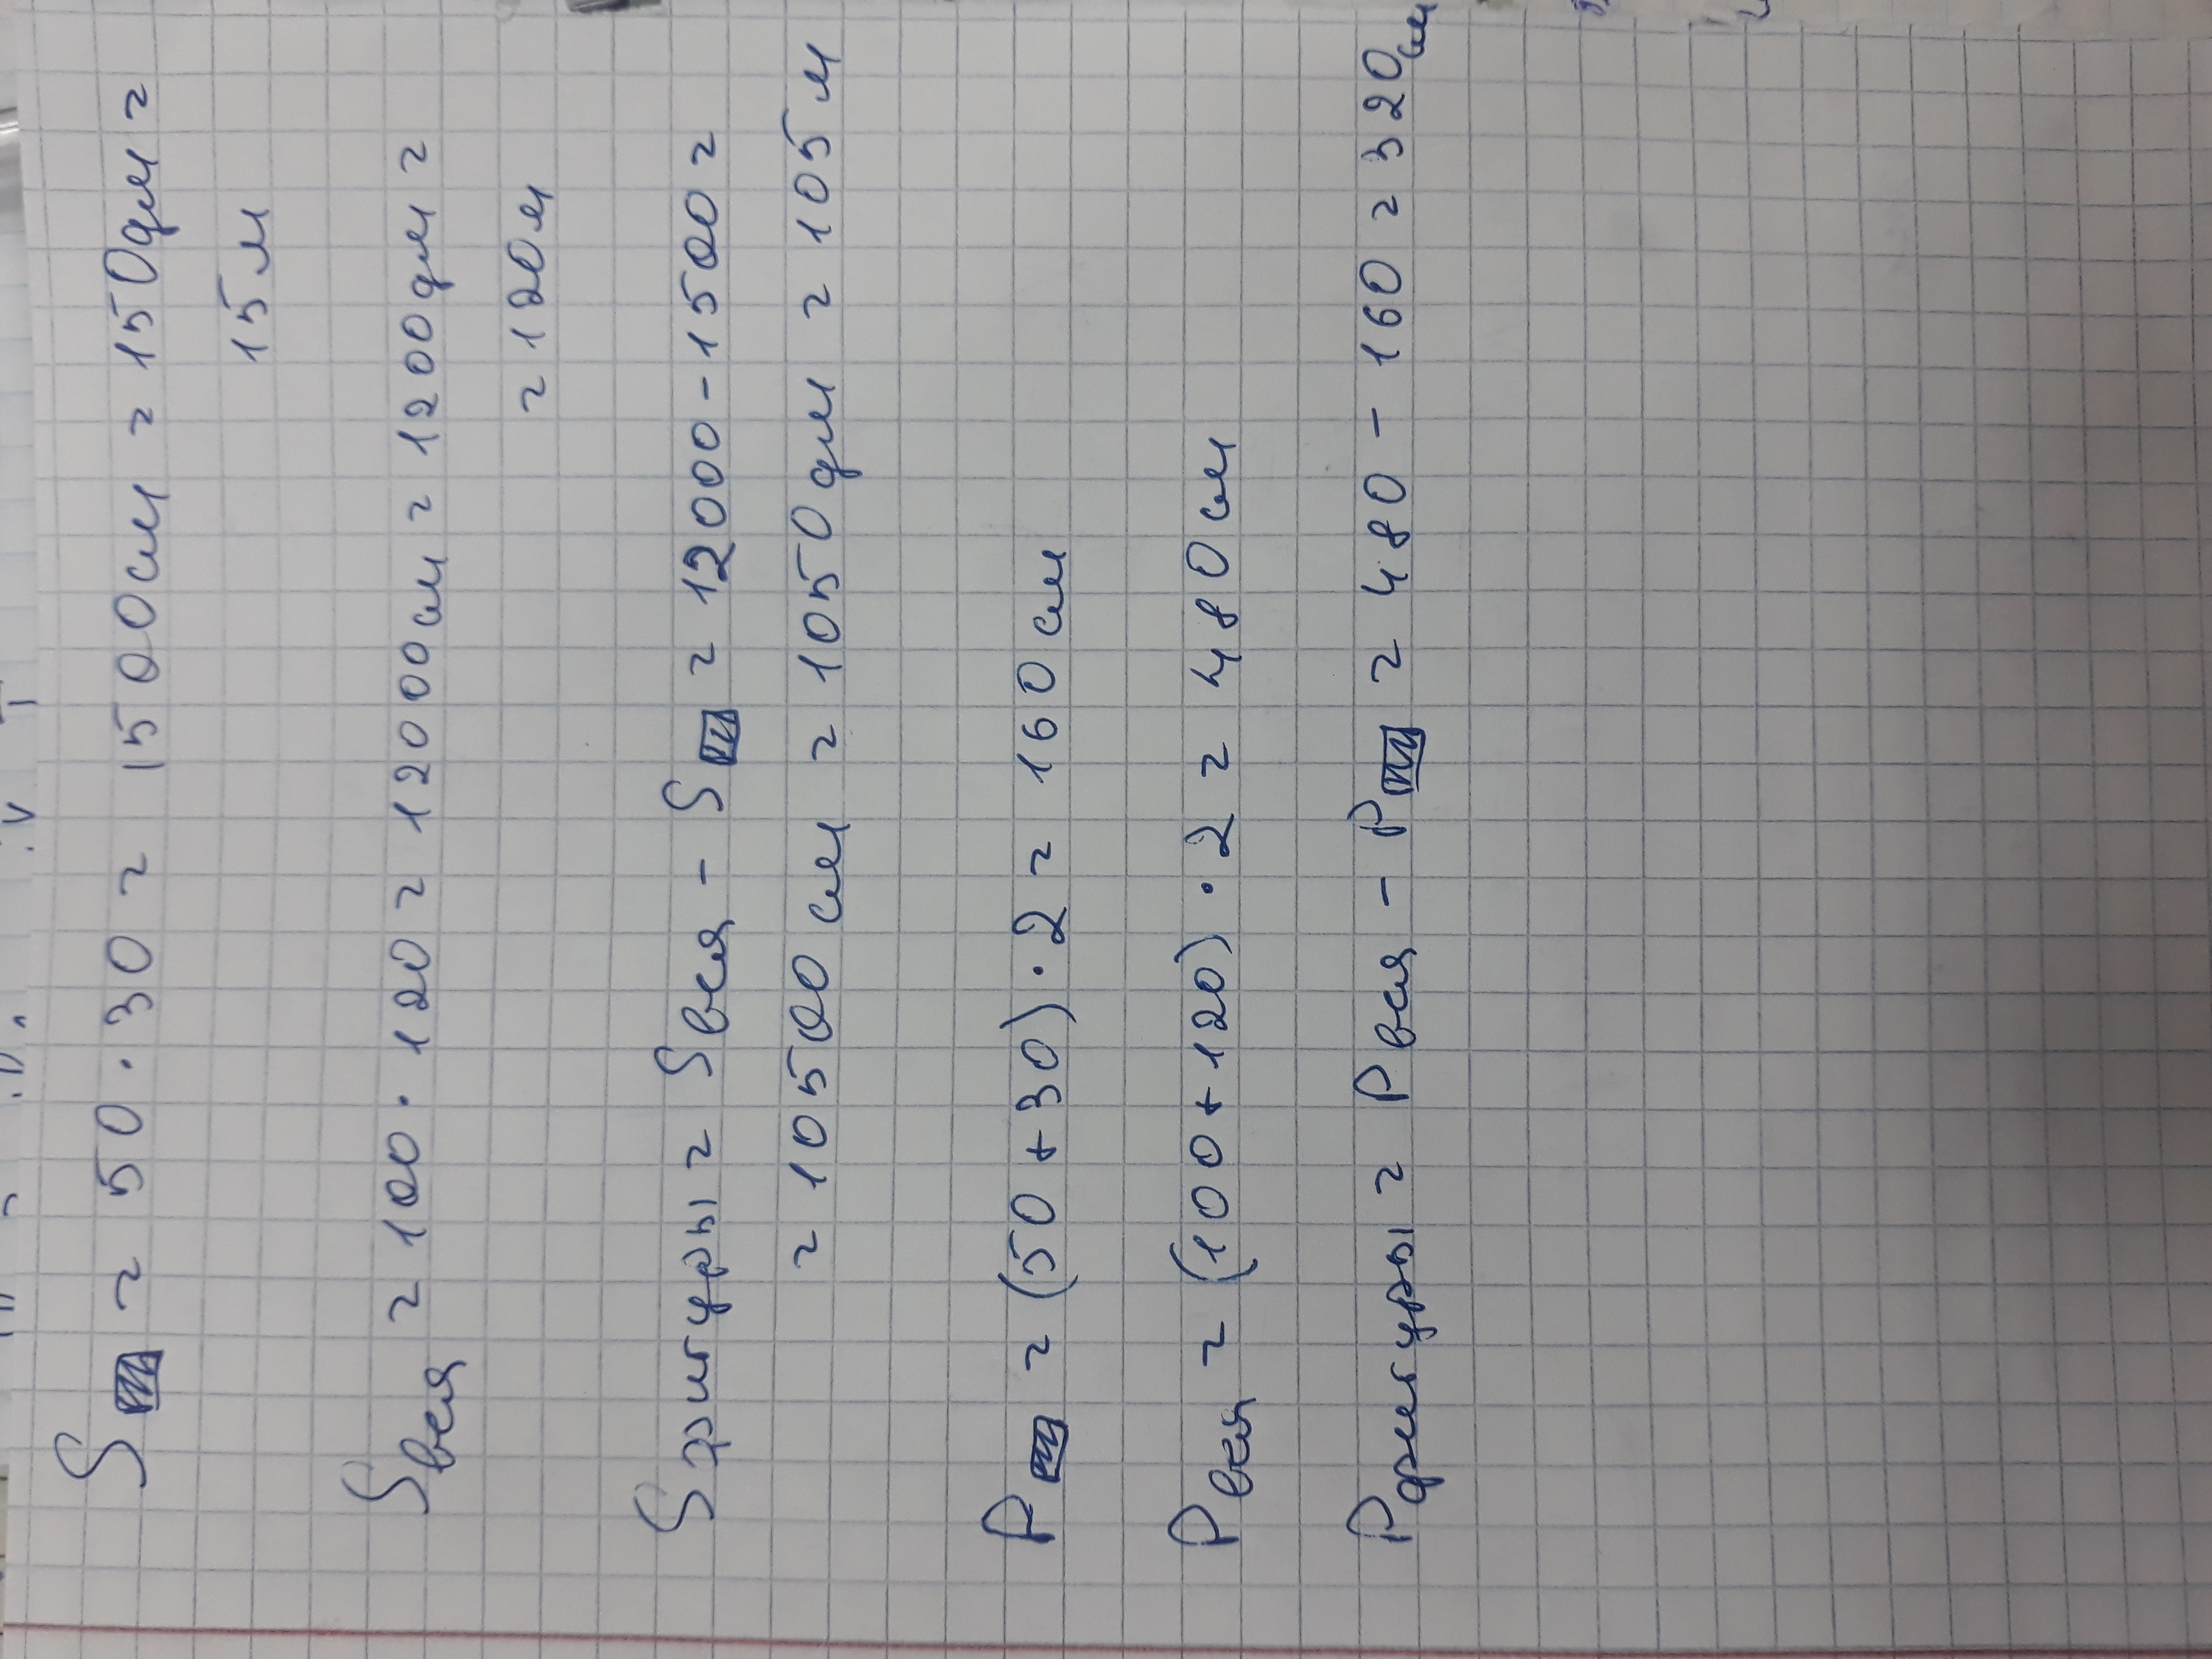 S = 50 · 30 = 1500см = 150дм =
15м
Sвся = 100 · 120 = 12000см = 1200дм =
= 120м
Sфигуры = Sвся - S = 12000 - 1500 =
= 10500см = 1050дм = 105м
P = (50 + 30) · 2 = 160см
Pвся = (100 + 120) · 2 = 480см
Pфигуры = Pвся - P = 480 - 160 = 320см